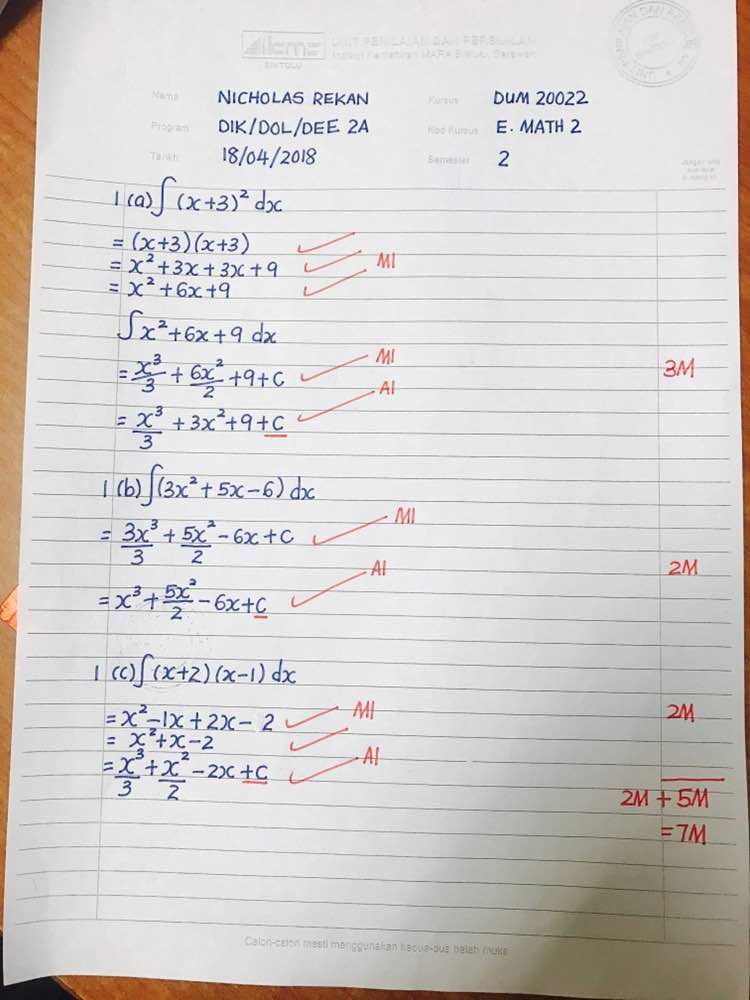 BINTULU
UNIT PENILAIAN DAN PERSIJILAN
Institut Kemahiran MARA Bintulu, Sarawak
Nama NICHOLAS REKAN Kursus DUM 20022
Program DIK/DOL/DEE 2A Kod Kursus E. MATH 2
Tarikh 18/04/2018 Semester 2
1 (a) ∫ (x+3)² dx
= (x+3)(x+3)
= x² + 3x + 3x + 9 M1
= x² + 6x + 9
∫ x² + 6x + 9 dx
= x³/3 + 6x²/2 + 9 + C M1 3M
= x³/3 + 3x² + 9 + C A1
1 (b) ∫ (3x² + 5x - 6) dx
= 3x³/3 + 5x²/2 - 6x + C M1
= x³ + 5x²/2 - 6x + C A1 2M
1 (c) ∫ (x+2) (x-1) dx
= x² - 1x + 2x - 2 M1 2M
= x² + x - 2
= x³/3 + x²/2 - 2x + C A1
2M + 5M
= 7M
Calon-calon mesti menggunakan kedua-dua belah muka